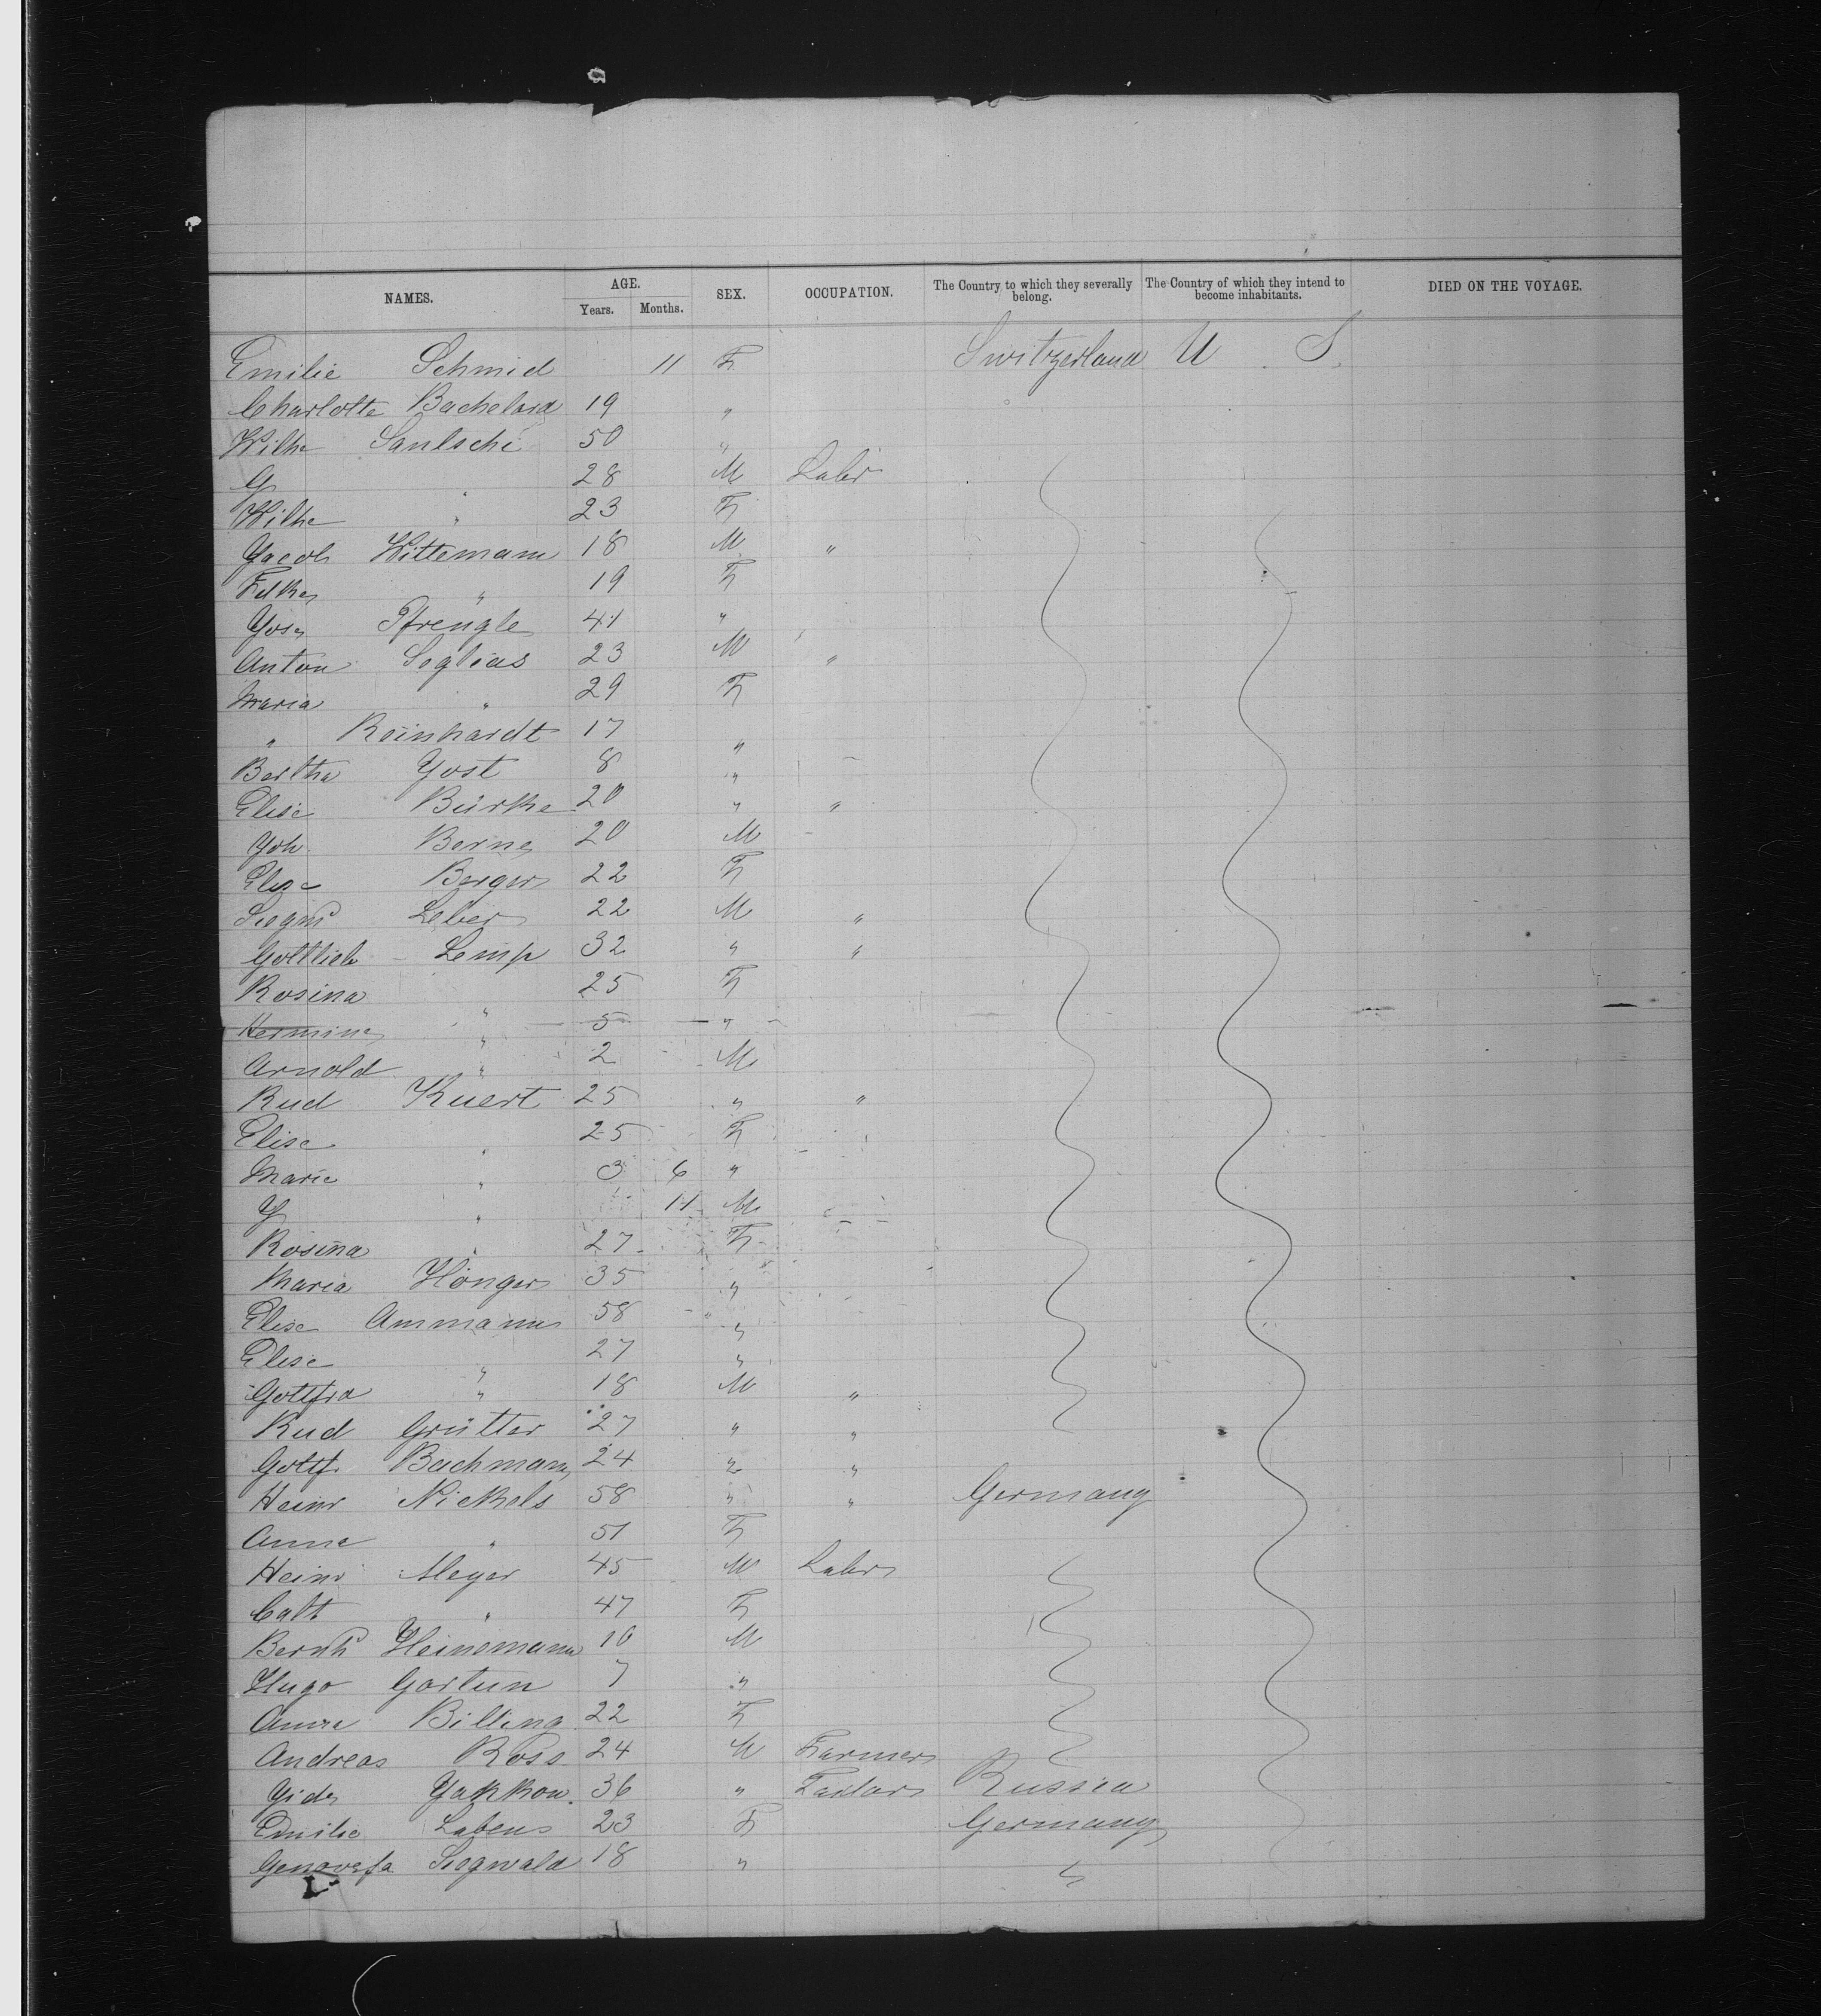 NAMES. AGE. SEX. OCCUPATION. The Country to which they severally belong. The Country of which they intend to become inhabitants. DIED ON THE VOYAGE.
Years. Months.
Emilie Schmid 11 F Switzerland U. S.
Charlotte Bachelard 19 "
Wilhe 50 "
G " 28 M Labr
Wilhe " 23 F
Yacob Wittemann 18 M "
" 19 F
Pfrengle 41 "
Anton Soglias 23 M "
Maria " 29 F
" Reinhardt 17 "
Bertha Yost 8 "
Elise Bürke 20 " "
Yoh Berne 20 M
Elise Berger 22 F
Leber 22 M "
Gottlieb Lemp 32 " "
Rosina " 25 F
Hermine " 5 "
Arnold " 2 M
Rud Kuert 25 " "
Elise " 25 F
Marie " 3 6 "
Y " 11 M
Rosina " 27 F
Maria Hönger 35 "
Elise Ammann 58 "
Elise " 27 "
Gottfrd " 18 M "
Rud Grütter 27 " "
Gottf. Bachmann 24 " "
Heinr Nickels 58 " " Germany
Anna " 51 F
Heinr Meyer 45 M Labr
Cath " 47 F
Bernhd Heinemann 10 M
Hugo Gartun 7 "
Anna Billing 22 F
Andreas Ross 24 M Farmer
Yakkow. 36 " Tailor Russia
Emilie Labens 23 F Germany
Genovefa Siegwald 18 " "